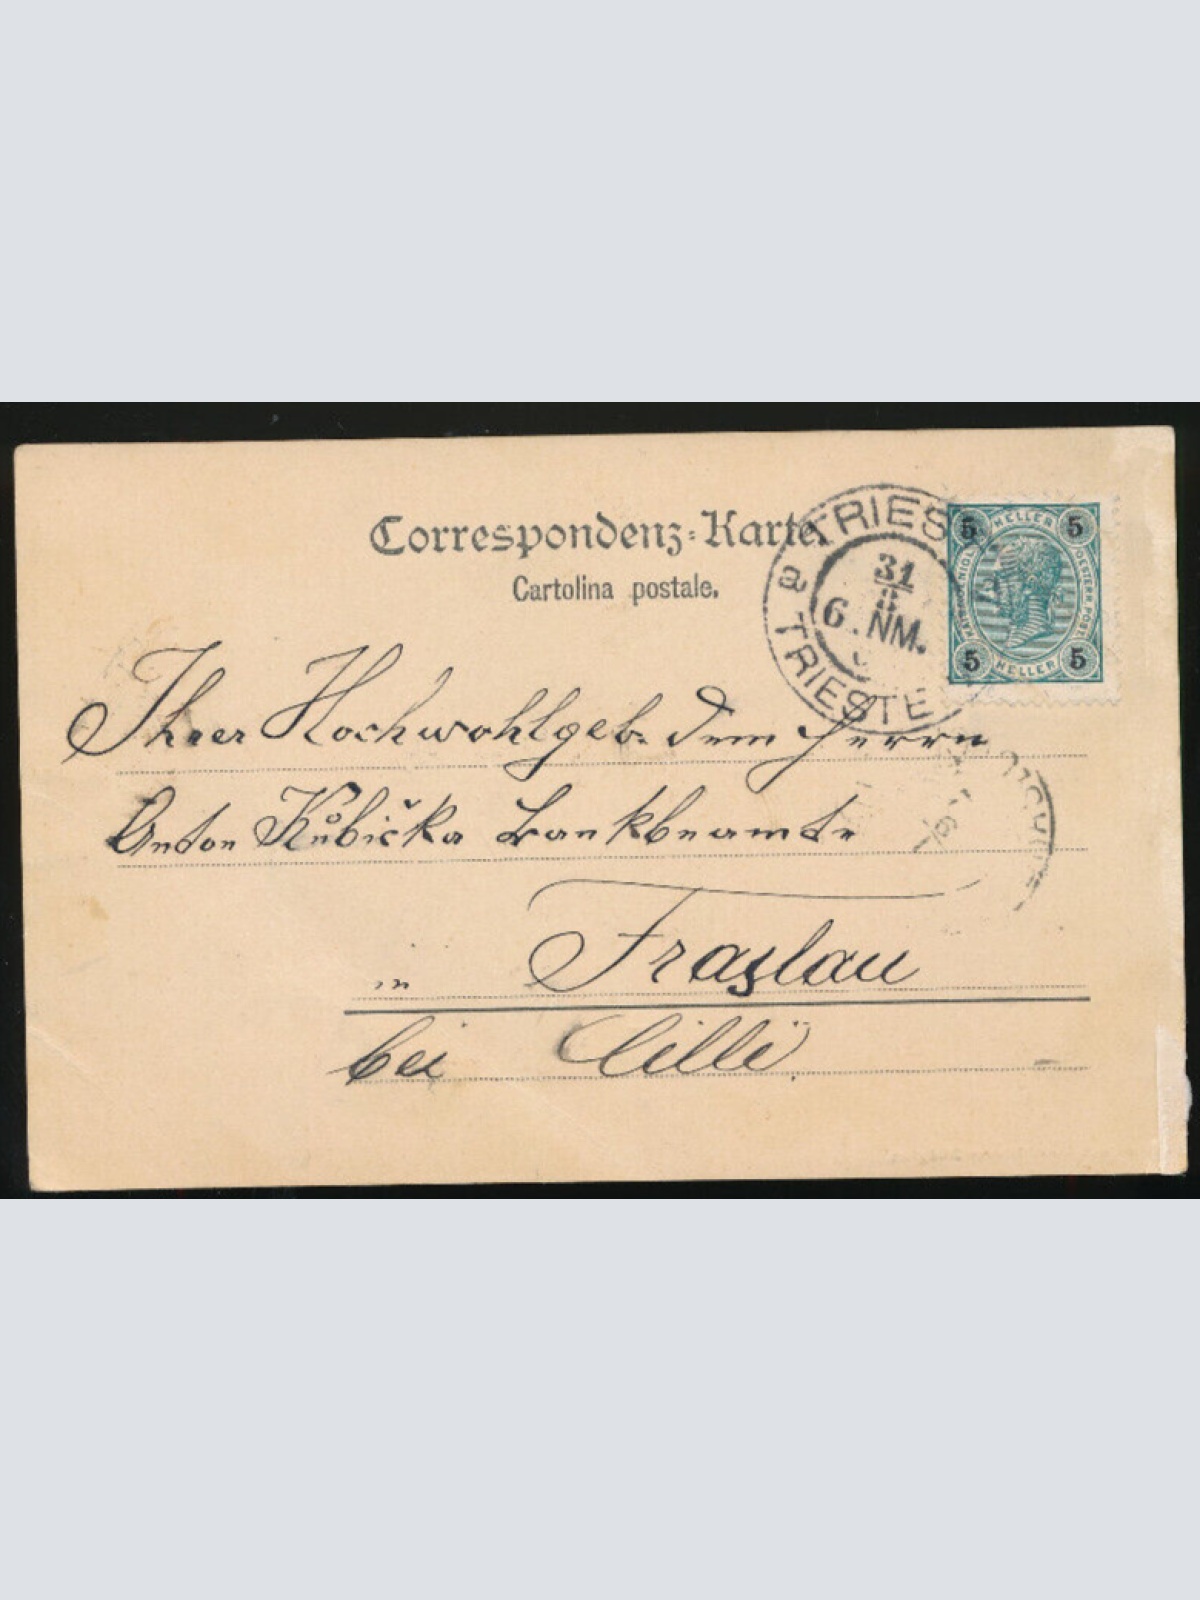 Correspondenz-Karte.
Cartolina postale.
TRIEST
31
8
6. NM.
TRIESTE
5 HELLER 5
KAIS. KÖNIGL. OESTERR. POST.
5 HELLER 5
Ihrer Hochwohlgeb. dem Herrn
Anton Kubička Bankbeamte
in Fraslau
bei Cilli.